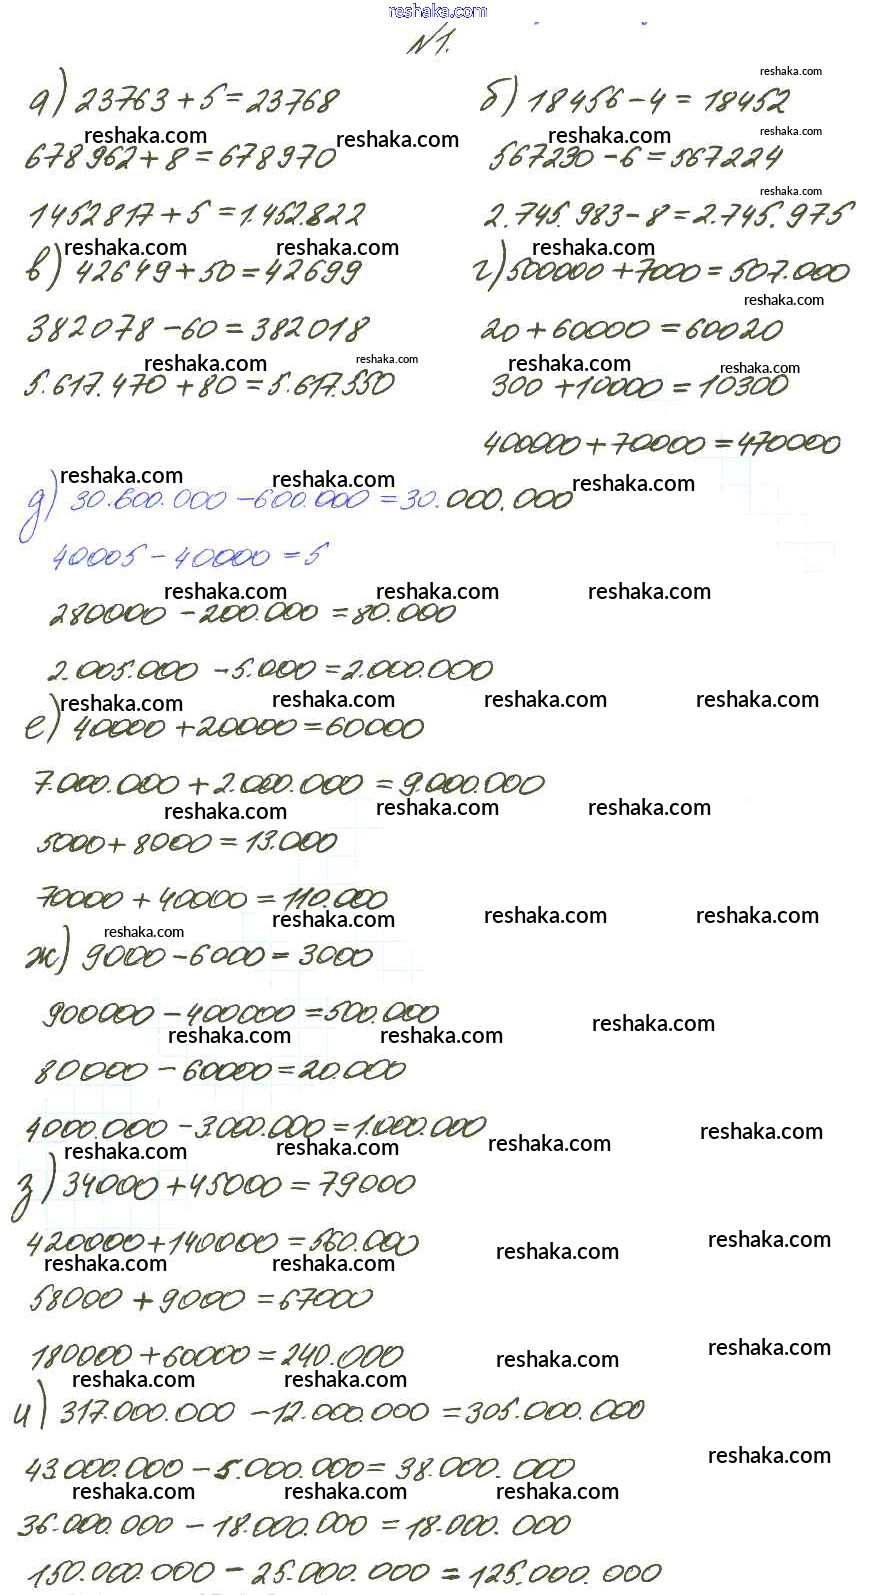 reshaka.com
№1.
а) 23763 + 5 = 23768
reshaka.com
б) 18456 - 4 = 18452
reshaka.com reshaka.com reshaka.com reshaka.com
678962 + 8 = 678970
567230 - 6 = 567224
reshaka.com
1452817 + 5 = 1.452.822
2.745.983 - 8 = 2.745.975
reshaka.com reshaka.com reshaka.com
в) 42649 + 50 = 42699
г) 500000 + 7000 = 507.000
reshaka.com
382078 - 60 = 382018
20 + 60000 = 60020
reshaka.com reshaka.com reshaka.com reshaka.com
5.617.470 + 80 = 5.617.550
300 + 10000 = 10300
400000 + 70000 = 470000
reshaka.com reshaka.com reshaka.com
д) 30.600.000 - 600.000 = 30.000.000
40005 - 40000 = 5
reshaka.com reshaka.com reshaka.com
280000 - 200.000 = 80.000
2.005.000 - 5.000 = 2.000.000
reshaka.com reshaka.com reshaka.com reshaka.com
е) 40000 + 20000 = 60000
7.000.000 + 2.000.000 = 9.000.000
reshaka.com reshaka.com reshaka.com
5000 + 8000 = 13.000
70000 + 40000 = 110.000
reshaka.com reshaka.com reshaka.com reshaka.com
ж) 9000 - 6000 = 3000
900000 - 400000 = 500.000
reshaka.com reshaka.com reshaka.com
80000 - 60000 = 20.000
4000.000 - 3.000.000 = 1.000.000
reshaka.com reshaka.com reshaka.com reshaka.com
з) 34000 + 45000 = 79000
420000 + 140000 = 560.000
reshaka.com reshaka.com reshaka.com reshaka.com
58000 + 9000 = 67000
180000 + 60000 = 240.000
reshaka.com reshaka.com reshaka.com reshaka.com
и) 317.000.000 - 12.000.000 = 305.000.000
reshaka.com
43.000.000 - 5.000.000 = 38.000.000
reshaka.com reshaka.com reshaka.com
36.000.000 - 18.000.000 = 18.000.000
150.000.000 - 25.000.000 = 125.000.000